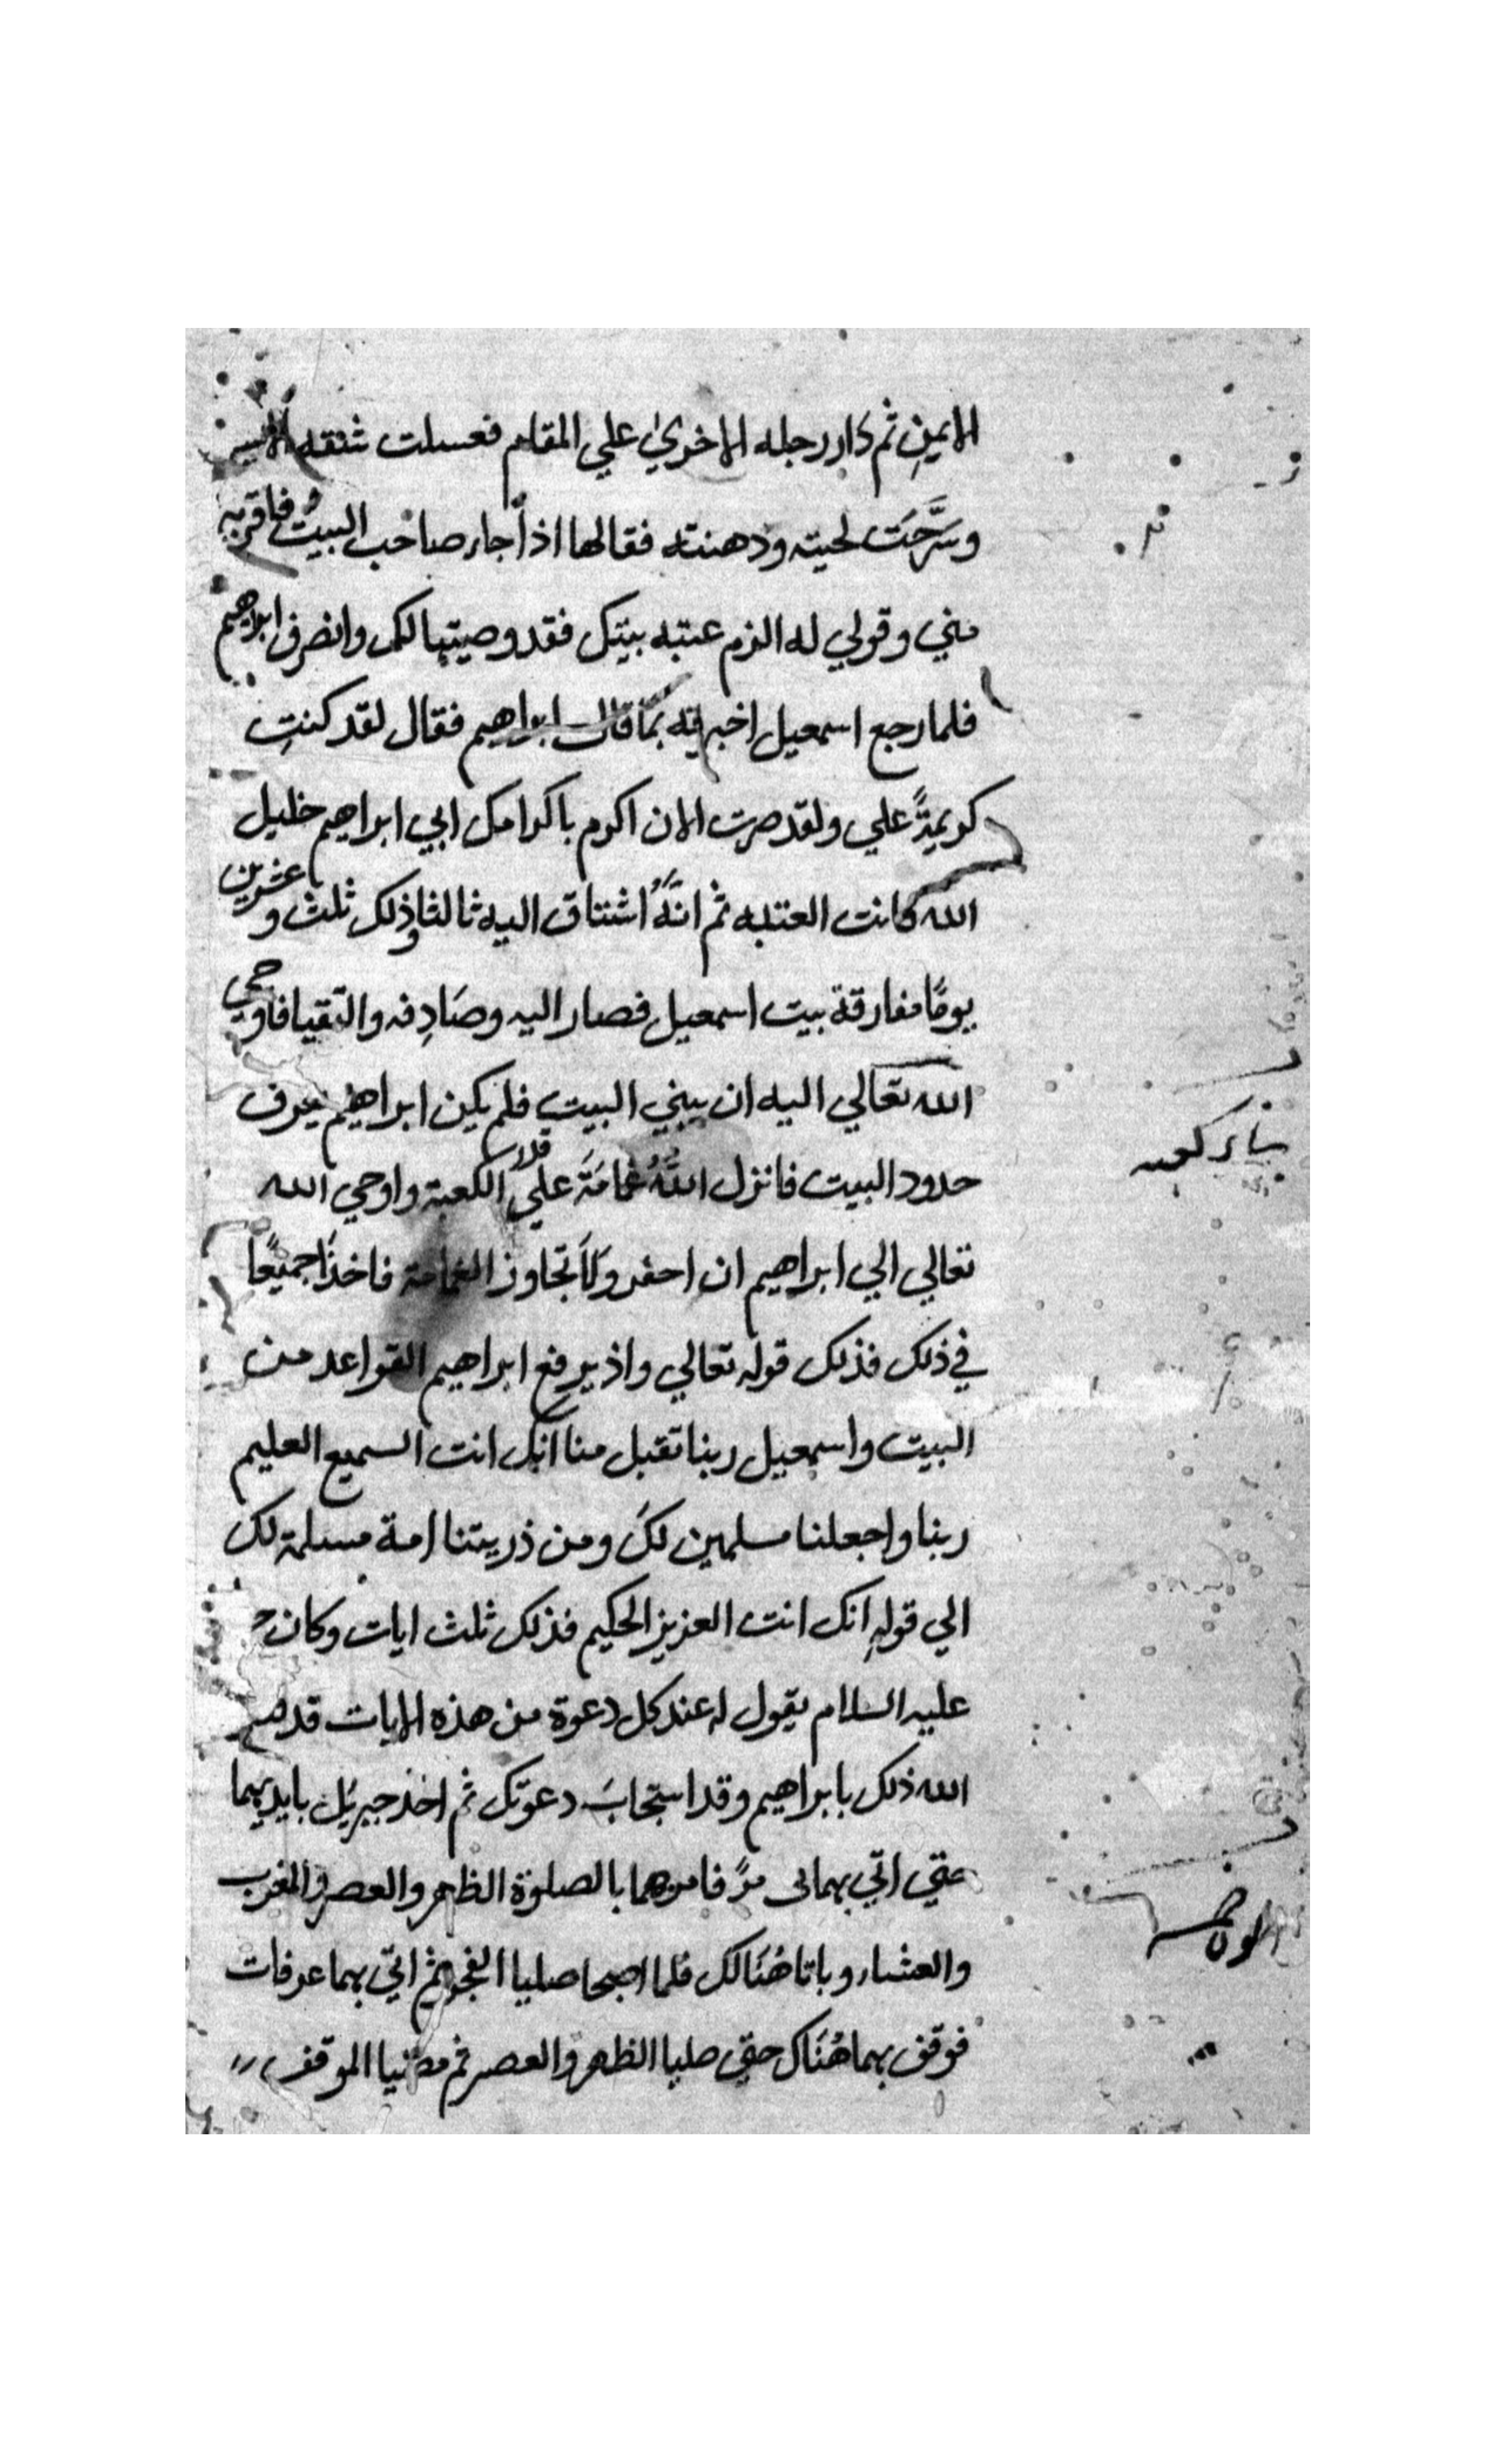 الايمن ثم دار رجله الاخري علي المقام فغسلت شقه الايسر
وسَرَّحَت لحيته ودهنته فقال لها اذا جاء صاحب البيت فاقريه
مني وقولي له الزم عتبه بيتك فقد وصيتها لك وانصرف ابراهيم
فلما رجع اسمعيل اخبرته بما قال ابراهيم فقال لقد كنتِ
كريمةً علي ولقد صرت الان اكرم باكرامك ابي ابراهيم خليل
الله كانت العتبه ثم انَّهُ اشتاق اليه ثالثا وذلك ثلث وعشرين
يومًا مفارقة بيت اسمعيل فصار اليه وصَادِفه والتقيا فاوحي
الله تعالي اليه ان يبني البيت فلم يكن ابراهيم يعرف
حدود البيت فانزل اللَّهُ غمامَةَ علي قدر الكعبة واوحي الله
تعالي الي ابراهيم ان احفر ولا تجاوز الغمامة فاخذا جميعًا
في ذلك فذلك قوله تعالي واذ يرفع ابراهيم القواعد من
البيت واسمعيل ربنا تقبل منا انك انت السميع العليم
ربنا واجعلنا مسلمين لكَ ومن ذريتنا امة مسلمة لك
الي قولهِ انك انت العزيز الحكيم فذلك ثلث ايات وكان
عليه السلام يقول له عند كل دعوة من هذه الايات قد
الله ذلك يابراهيم وقد استجابَ دعوتك ثم اخذ جبريَل بايديهما
حتي اتي بهما فامرهما بالصلوة الظهر والعصر والمغرب
والعشاء وباتا هُنَالك فلما اصبحا صليا الفجر ثم اتي بهما عرفات
فوقف بهما هُنَاك حتي صليا الظهر والعصر ثم الموقف
بناء كعبه